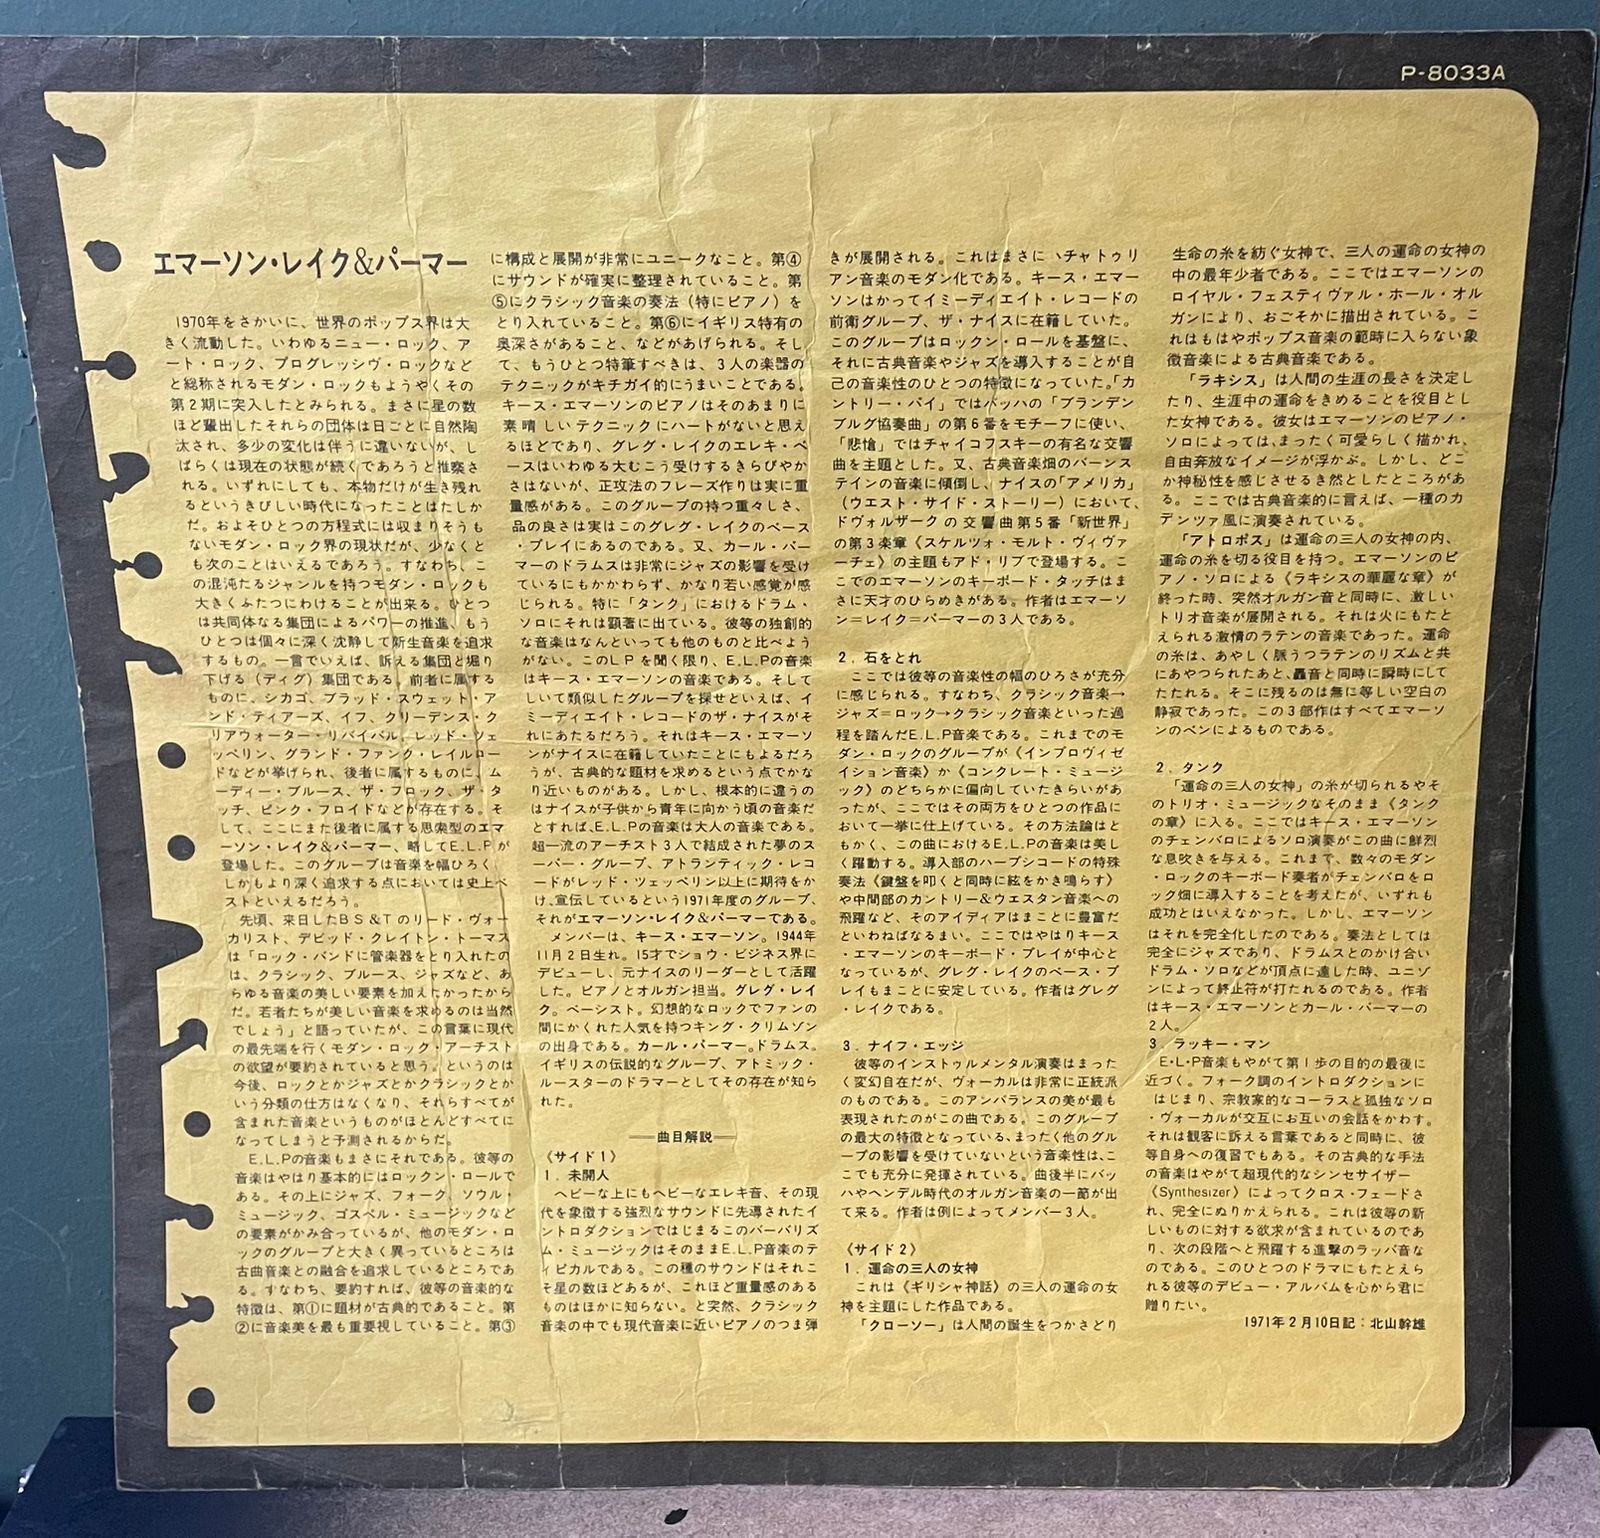 P-8033A
エマーソン・レイク&パーマー
1970年をさかいに、世界のポップス界は大
きく流動した。いわゆるニュー・ロック、ア
ート・ロック、プログレッシヴ・ロックなど
と総称されるモダン・ロックもようやくその
第2期に突入したとみられる。まさに星の数
ほど輩出したそれらの団体は日ごとに自然陶
汰され、多少の変化は伴うに違いないが、し
ばらくは現在の状態が続くであろうと推察さ
れる。いずれにしても、本物だけが生き残れ
るというきびしい時代になったことはたしか
だ。およそひとつの方程式には収まりそうも
ないモダン・ロック界の現状だが、少なくと
も次のことはいえるであろう。すなわち、こ
の混沌たるジャンルを持つモダン・ロックも
大きくふたつにわけることが出来る。ひとつ
は共同体なる集団によるパワーの推進、もう
ひとつは個々に深く沈静して新生音楽を追求
するもの。一言でいえば、訴える集団と堀り
下げる(ディグ)集団である。前者に属する
ものに、シカゴ、ブラッド・スウェット・ア
ンド・ティアーズ、イフ、クリーデンス・ク
リアウォーター・リバイバル、レッド・ツェ
ッペリン、グランド・ファンク・レイルロー
ドなどが挙げられ、後者に属するものに、ム
ーディー・ブルース、ザ・フロック、ザ・タ
ッチ、ピンク・フロイドなどが存在する。そ
して、ここにまた後者に属する思索型のエマ
ーソン・レイク&パーマー、略してE.L.Pが
登場した。このグループは音楽を幅ひろく、
しかもより深く追求する点においては史上ベ
ストといえるだろう。
先頃、来日したBS&Tのリード・ヴォー
カリスト、デビッド・クレイトン・トーマス
は「ロック・バンドに管楽器をとり入れたの
は、クラシック、ブルース、ジャズなど、あ
らゆる音楽の美しい要素を加えたかったから
だ。若者たちが美しい音楽を求めるのは当然
でしょう」と語っていたが、この言葉に現代
の最先端を行くモダン・ロック・アーチスト
の欲望が要約されていると思う。というのは
今後、ロックとかジャズとかクラシックとか
いう分類の仕方はなくなり、それらすべてが
含まれた音楽というものがほとんどすべてに
なってしまうと予測されるからだ。
E.L.Pの音楽もまさにそれである。彼等の
音楽はやはり基本的にはロックン・ロールで
ある。その上にジャズ、フォーク、ソウル・
ミュージック、ゴスペル・ミュージックなど
の要素がかみ合っているが、他のモダン・ロ
ックのグループと大きく異っているところは
古曲音楽との融合を追求しているところであ
る。すなわち、要約すれば、彼等の音楽的な
特徴は、第①に題材が古典的であること。第
②に音楽美を最も重要視していること。第③
に構成と展開が非常にユニークなこと。第④
にサウンドが確実に整理されていること。第
⑤にクラシック音楽の奏法(特にピアノ)を
とり入れていること。第⑥にイギリス特有の
奥深さがあること、などがあげられる。そし
て、もうひとつ特筆すべきは、3人の楽器の
テクニックがキチガイ的にうまいことである。
キース・エマーソンのピアノはそのあまりに
素晴しいテクニックにハートがないと思え
るほどであり、グレグ・レイクのエレキ・ベ
ースはいわゆる大むこう受けするきらびやか
さはないが、正攻法のフレーズ作りは実に重
量感がある。このグループの持つ重々しさ、
品の良さは実はこのグレグ・レイクのベース
・プレイにあるのである。又、カール・パー
マーのドラムスは非常にジャズの影響を受け
ているにもかかわらず、かなり若い感覚が感
じられる。特に「タンク」におけるドラム・
ソロにそれは顕著に出ている。彼等の独創的
な音楽はなんといっても他のものと比べよう
がない。このLPを聞く限り、E.L.Pの音楽
はキース・エマーソンの音楽である。そして
しいて類似したグループを探せといえば、イ
ミーディエイト・レコードのザ・ナイスがそ
れにあたるだろう。それはキース・エマーソ
ンがナイスに在籍していたことにもよるだろ
うが、古典的な題材を求めるという点でかな
り近いものがある。しかし、根本的に違うの
はナイスが子供から青年に向かう頃の音楽だ
とすれば、E.L.Pの音楽は大人の音楽である。
超一流のアーチスト3人で結成された夢のス
ーパー・グループ、アトランティック・レコ
ードがレッド・ツェッペリン以上に期待をか
け、宣伝しているという1971年度のグループ、
それがエマーソン・レイク&パーマーである。
メンバーは、キース・エマーソン。1944年
11月2日生れ。15才でショウ・ビジネス界に
デビューし、元ナイスのリーダーとして活躍
した。ピアノとオルガン担当。グレグ・レイ
ク。ベーシスト。幻想的なロックでファンの
間にかくれた人気を持つキング・クリムゾン
の出身である。カール・パーマー。ドラムス。
イギリスの伝説的なグループ、アトミック・
ルースターのドラマーとしてその存在が知ら
れた。
——曲目解説——
《サイド1》
1. 未開人
ヘビーな上にもヘビーなエレキ音、その現
代を象徴する強烈なサウンドに先導されたイ
ントロダクションではじまるこのバーバリズ
ム・ミュージックはそのままE.L.P音楽のテ
ィピカルである。この種のサウンドはそれこ
そ星の数ほどあるが、これほど重量感のある
ものはほかに知らない。と突然、クラシック
音楽の中でも現代音楽に近いピアノのつま弾
きが展開される。これはまさにハチャトゥリ
アン音楽のモダン化である。キース・エマー
ソンはかってイミーディエイト・レコードの
前衛グループ、ザ・ナイスに在籍していた。
このグループはロックン・ロールを基盤に、
それに古典音楽やジャズを導入することが自
己の音楽性のひとつの特徴になっていた。「カ
ントリー・パイ」ではバッハの「ブランデン
ブルグ協奏曲」の第6番をモチーフに使い、
「悲愴」ではチャイコフスキーの有名な交響
曲を主題とした。又、古典音楽畑のバーンス
テインの音楽に傾倒し、ナイスの「アメリカ」
(ウエスト・サイド・ストーリー)において、
ドヴォルザークの交響曲第5番「新世界」
の第3楽章《スケルツォ・モルト・ヴィヴァ
ーチェ》の主題もアド・リブで登場する。こ
こでのエマーソンのキーボード・タッチはま
さに天才のひらめきがある。作者はエマーソ
ン=レイク=パーマーの3人である。
2. 石をとれ
ここでは彼等の音楽性の幅のひろさが充分
に感じられる。すなわち、クラシック音楽→
ジャズ=ロック→クラシック音楽といった過
程を踏んだE.L.P音楽である。これまでのモ
ダン・ロックのグループが《インプロヴィゼ
イション音楽》か《コンクレート・ミュージ
ック》のどちらかに偏向していたきらいがあ
ったが、ここではその両方をひとつの作品に
おいて一挙に仕上げている。その方法論はと
もかく、この曲におけるE.L.Pの音楽は美し
く躍動する。導入部のハープシコードの特殊
奏法《鍵盤を叩くと同時に絃をかき鳴らす》
や中間部のカントリー&ウエスタン音楽への
飛躍など、そのアイディアはまことに豊富だ
といわねばなるまい。ここではやはりキース
・エマーソンのキーボード・プレイが中心と
なっているが、グレグ・レイクのベース・プ
レイもまことに安定している。作者はグレグ
・レイクである。
3. ナイフ・エッジ
彼等のインストゥルメンタル演奏はまった
く変幻自在だが、ヴォーカルは非常に正統派
のものである。このアンバランスの美が最も
表現されたのがこの曲である。このグループ
の最大の特徴となっている、まったく他のグル
ープの影響を受けていないという音楽性は、こ
こでも充分に発揮されている。曲後半にバッ
ハやヘンデル時代のオルガン音楽の一節が出
て来る。作者は例によってメンバー3人。
《サイド2》
1. 運命の三人の女神
これは《ギリシャ神話》の三人の運命の女
神を主題にした作品である。
「クローソー」は人間の誕生をつかさどり
生命の糸を紡ぐ女神で、三人の運命の女神の
中の最年少者である。ここではエマーソンの
ロイヤル・フェスティヴァル・ホール・オル
ガンにより、おごそかに描出されている。こ
れはもはやポップス音楽の範畴に入らない象
徴音楽による古典音楽である。
「ラキシス」は人間の生涯の長さを決定し
たり、生涯中の運命をきめることを役目とし
た女神である。彼女はエマーソンのピアノ・
ソロによっては、まったく可愛らしく描かれ、
自由奔放なイメージが浮かぶ。しかし、どこ
か神秘性を感じさせるき然としたところがあ
る。ここでは古典音楽的に言えば、一種のカ
デンツァ風に演奏されている。
「アトロポス」は運命の三人の女神の内、
運命の糸を切る役目を持つ。エマーソンのピ
アノ・ソロによる《ラキシスの華麗な章》が
終った時、突然オルガン音と同時に、激しい
トリオ音楽が展開される。それは火にもたと
えられる激情のラテンの音楽であった。運命
の糸は、あやしく脈うつラテンのリズムと共
にあやつられたあと、轟音と同時に瞬時にして
たたれる。そこに残るのは無に等しい空白の
静寂であった。この3部作はすべてエマーソ
ンのペンによるものである。
2. タンク
「運命の三人の女神」の糸が切られるやそ
のトリオ・ミュージックなそのまま《タンク
の章》に入る。ここではキース・エマーソン
のチェンバロによるソロ演奏がこの曲に鮮烈
な息吹きを与える。これまで、数々のモダン
・ロックのキーボード奏者がチェンバロをロ
ック畑に導入することを考えたが、いずれも
成功とはいえなかった。しかし、エマーソン
はそれを完全化したのである。奏法としては
完全にジャズであり、ドラムスとのかけ合い
ドラム・ソロなどが頂点に達した時、ユニゾ
ンによって終止符が打たれるのである。作者
はキース・エマーソンとカール・パーマーの
2人。
3. ラッキー・マン
E・L・P音楽もやがて第1歩の目的の最後に
近づく。フォーク調のイントロダクションに
はじまり、宗教家的なコーラスと孤独なソロ
・ヴォーカルが交互にお互いの会話をかわす。
それは観客に訴える言葉であると同時に、彼
等自身への復習でもある。その古典的な手法
の音楽はやがて超現代的なシンセサイザー
《Synthesizer》によってクロス・フェードさ
れ、完全にぬりかえられる。これは彼等の新
しいものに対する欲求が含まれているのであ
り、次の段階へと飛躍する進撃のラッパ音な
のである。このひとつのドラマにもたとえら
れる彼等のデビュー・アルバムを心から君に
贈りたい。
1971年2月10日記:北山幹雄